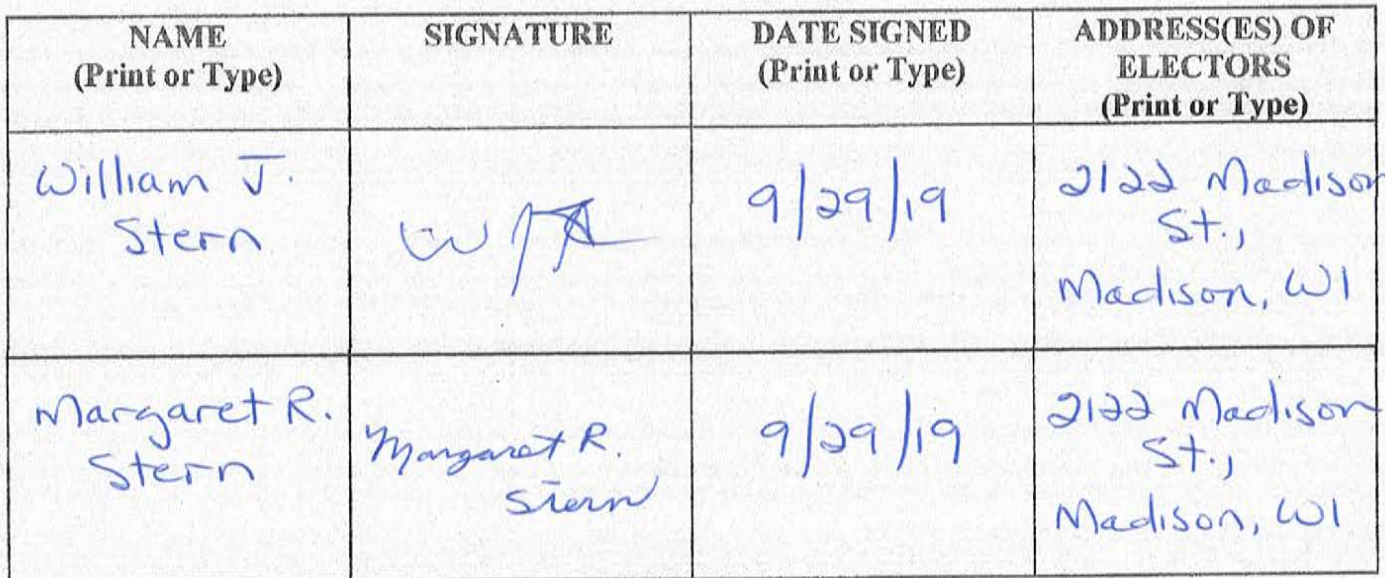 NAME
(Print or Type)
SIGNATURE
DATE SIGNED
(Print or Type)
ADDRESS(ES) OF
ELECTORS
(Print or Type)
William J.
Stern
9/29/19
2122 Madison
St.,
Madison, WI
Margaret R.
Stern
Margaret R.
Stern
9/29/19
2122 Madison
St.,
Madison, WI